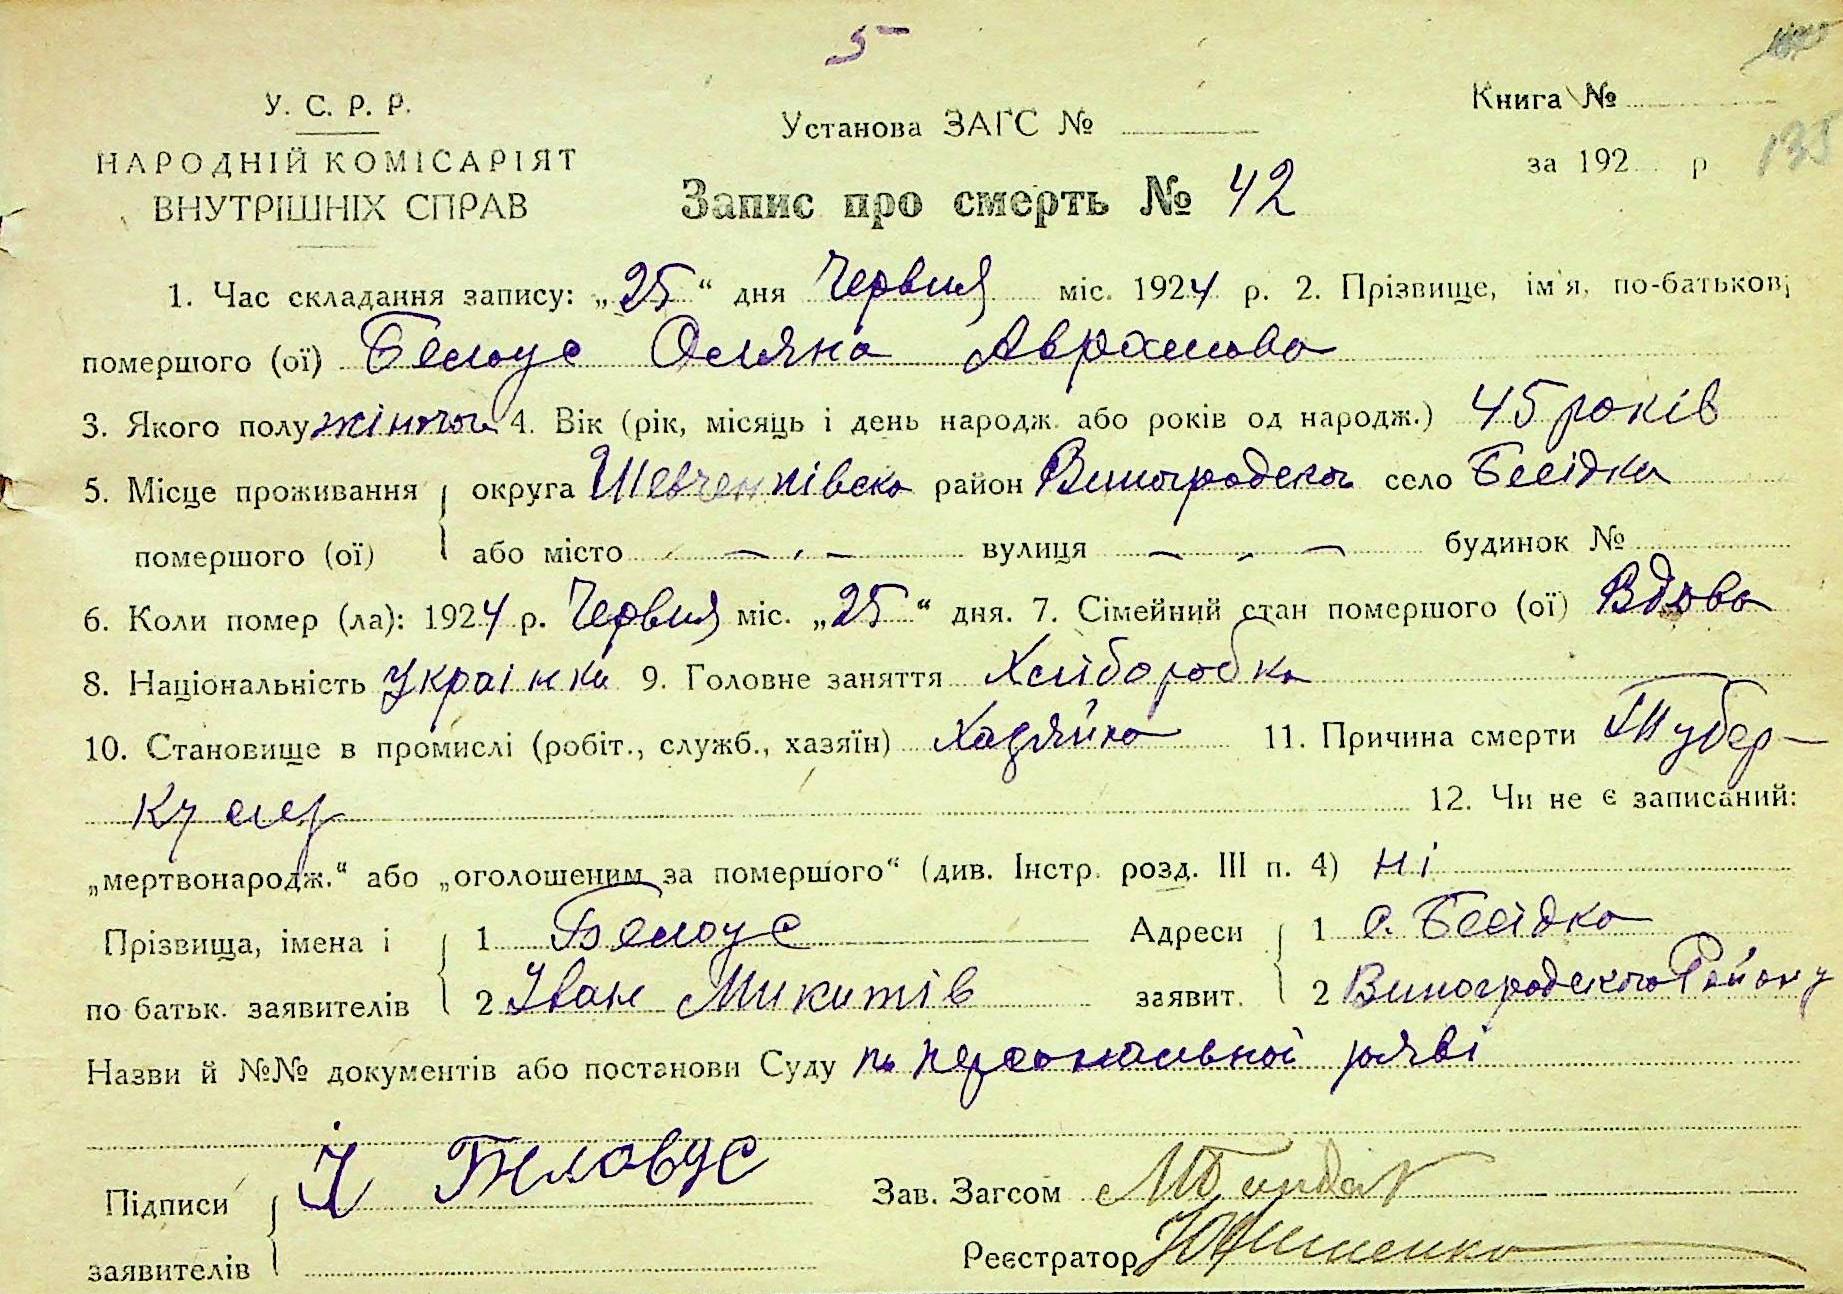 5
У. С. Р. Р.
НАРОДНІЙ КОМІСАРІЯТ
ВНУТРІШНІХ СПРАВ
Установа ЗАГС №
Книга №
за 192 р
135
Запис про смерть № 42
1. Час складання запису: „25“ дня Червня міс. 1924 р. 2. Прізвище, ім'я, по-батькові
помершого (ої) Белоус Оляна Аврамова
3. Якого полу жіночого 4. Вік (рік, місяць і день народж. або років од народж.) 45 років
5. Місце проживання округа Шевченківска район Виноградског село Бесідка
помершого (ої) або місто вулиця будинок №
6. Коли помер (ла): 1924 р. Червня міс. „25“ дня. 7. Сімейний стан помершого (ої) Вдова
8. Національність Українка 9. Головне заняття Хліборобка
10. Становище в промислі (робіт., служб., хазяїн) Хазяйка 11. Причина смерти Тубер-
кулез
12. Чи не є записаний:
„мертвонародж.“ або „оголошеним за помершого“ (див. Інстр. розд. III п. 4) ні
Прізвища, імена і 1 Белоус Адреси 1 с. Бесідка
по батьк. заявителів 2 Іван Микитів заявит. 2 Виноградского Району
Назви й №№ документів або постанови Суду по персональной заяві
Підписи І Біловус Зав. Загсом
заявителів Реєстратор